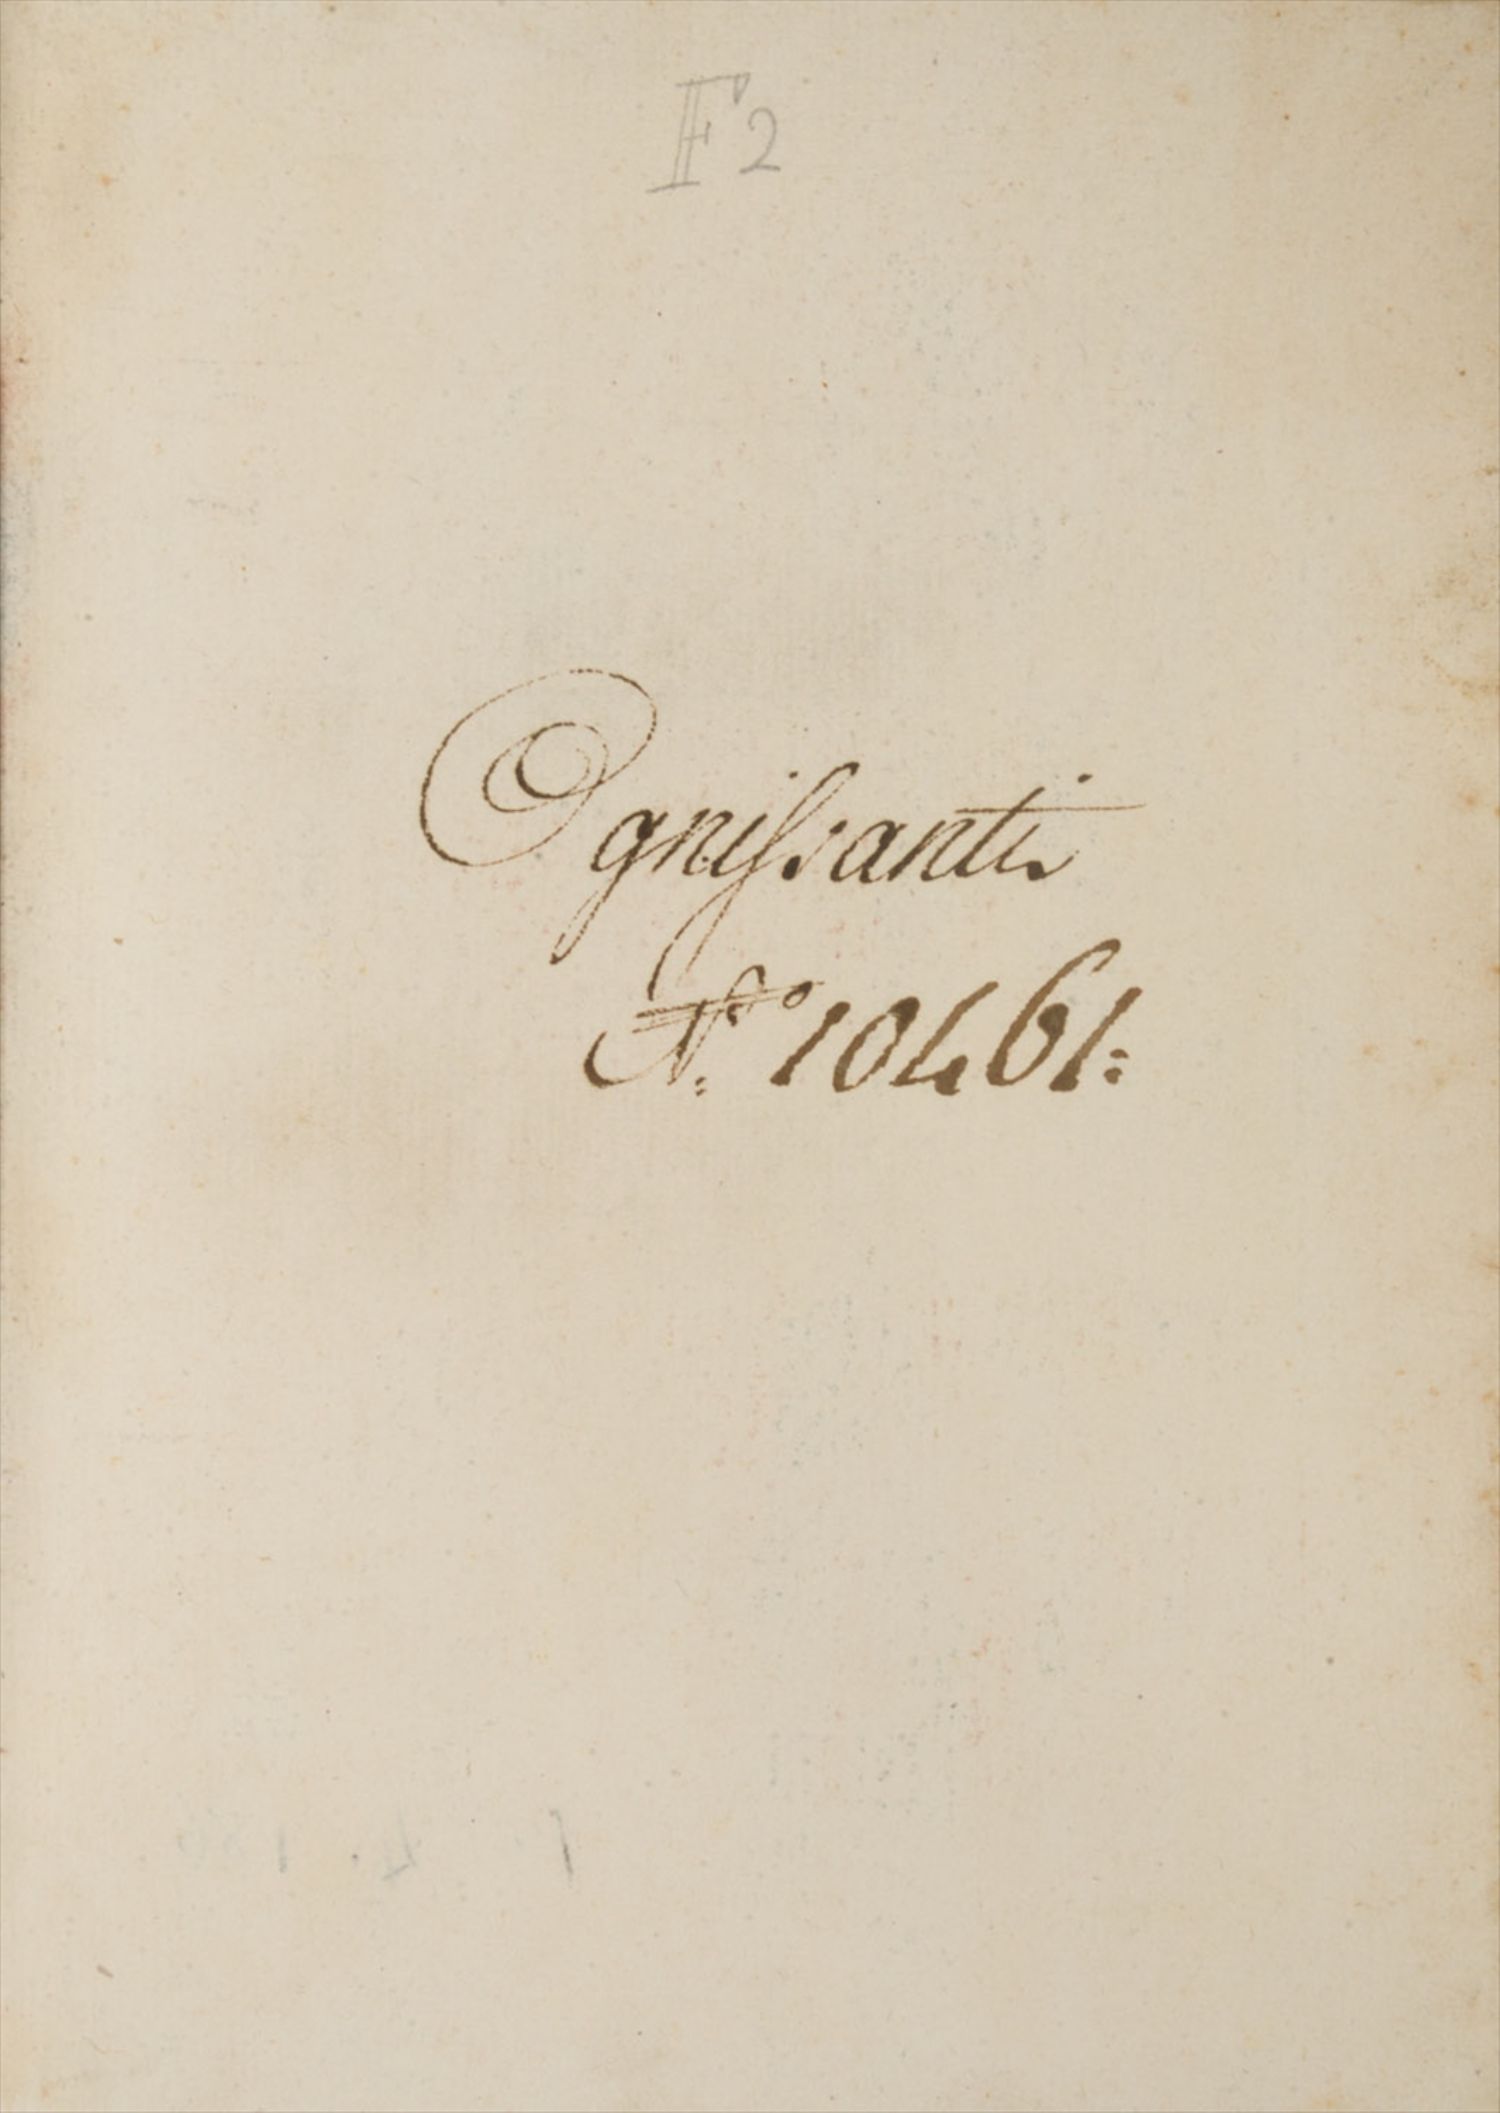 F2
Ognissanti
N.º 10461: